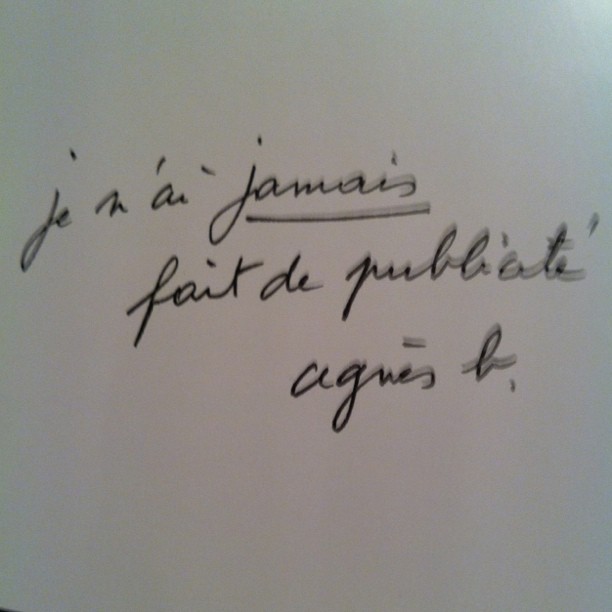 je n'ai jamais
fait de publicité
agnès b.